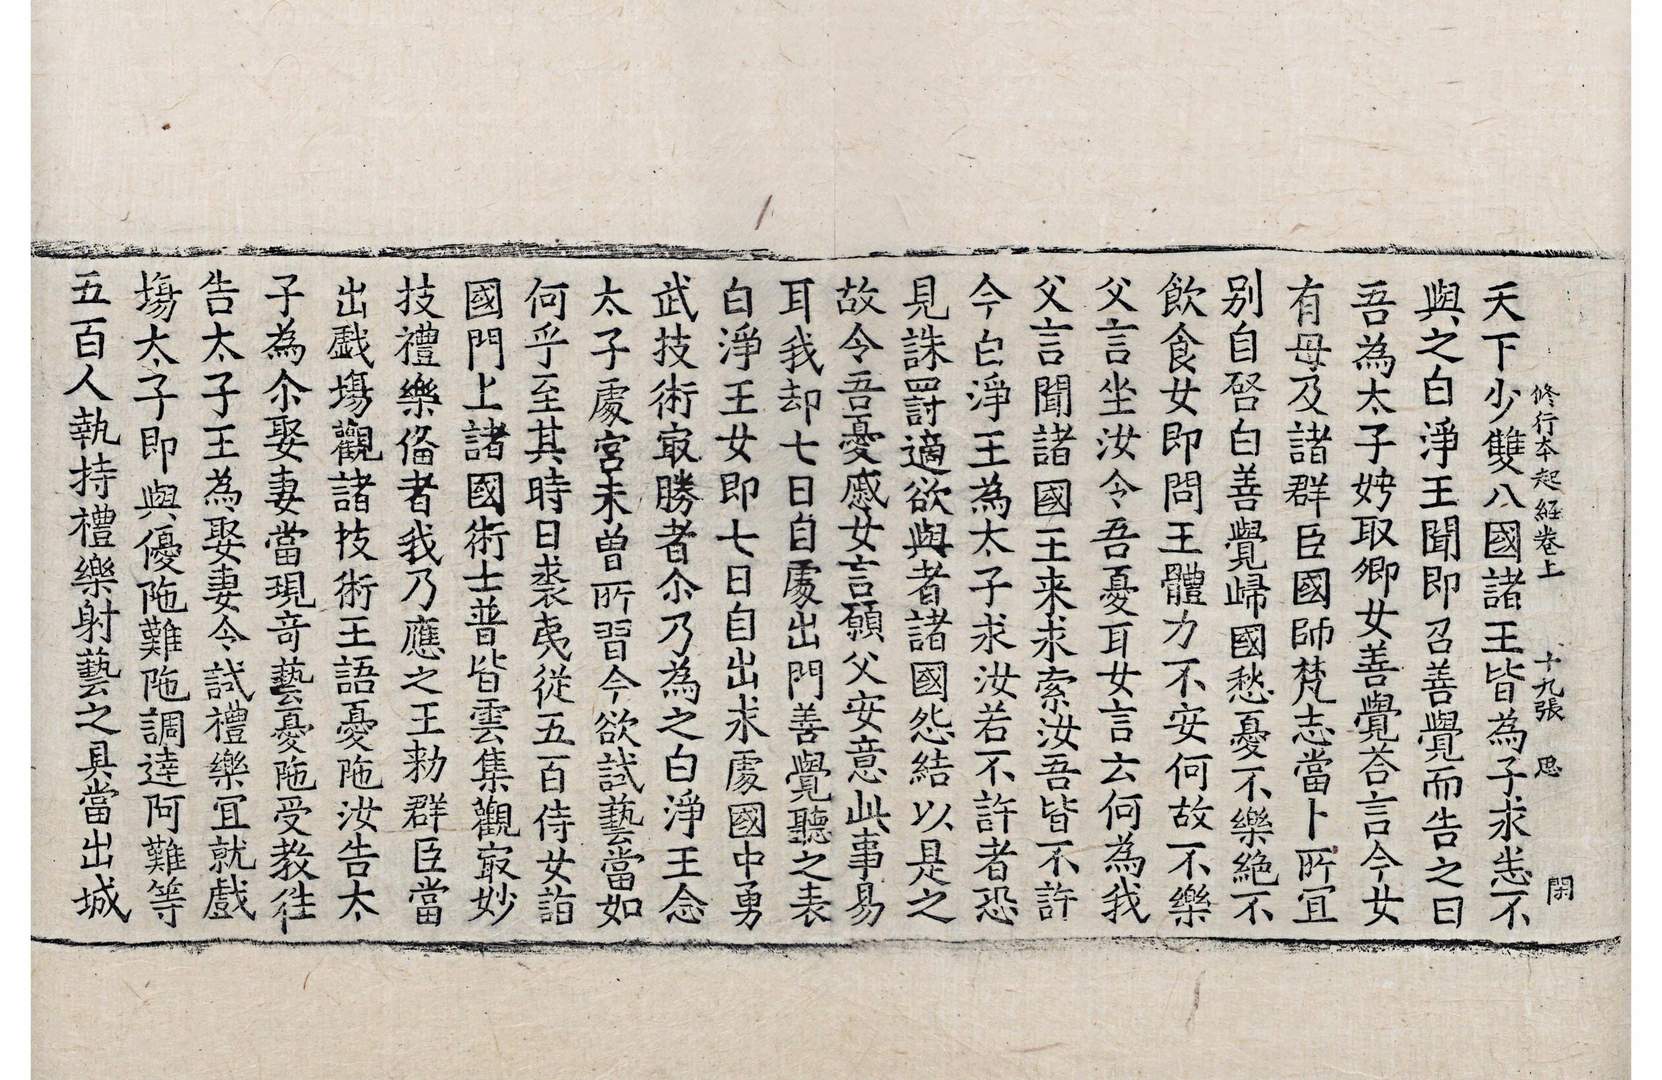 修行本起經卷上 十九張 思 閑
天下少雙八國諸王皆為子求恚不
與之白淨王聞即召善覺而告之曰
吾為太子娉取卿女善覺荅言今女
有母及諸群臣國師梵志當卜所宜
别自啓白善覺歸國愁憂不樂絶不
飲食女即問王體力不安何故不樂
父言坐汝令吾憂耳女言云何為我
父言聞諸國王来求索汝吾皆不許
今白淨王為太子求汝若不許者恐
見誅罸適欲與者諸國怨結以是之
故令吾憂慼女言願父安意此事易
耳我却七日自處出門善覺聽之表
白淨王女即七日自出求處國中勇
武技術㝡勝者尒乃為之白淨王念
太子處宮未曽所習今欲試藝當如
何乎至其時日裘夷從五百侍女詣
國門上諸國術士普皆雲集觀㝡妙
技禮樂俻者我乃應之王勑群臣當
出戱塲觀諸技術王語憂陁汝告太
子為尒娶妻當現竒藝憂陁受教徃
告太子王為娶妻令試禮樂宜就戯
塲太子即與優陁難陁調達阿難等
五百人執持禮樂射藝之具當出城